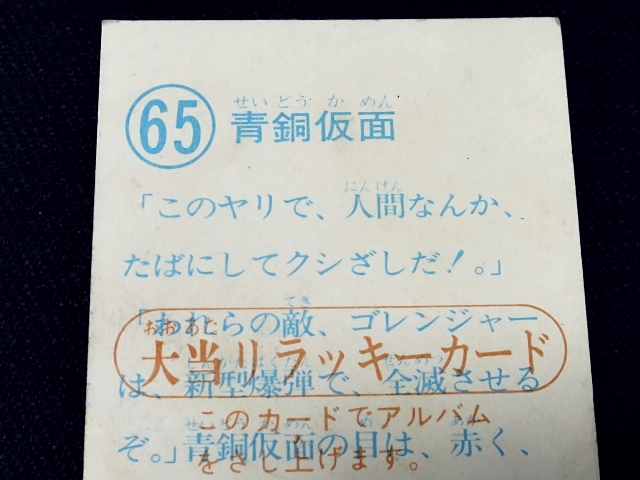 65
せいどうかめん
青銅仮面
にんげん
「このヤリで、人間なんか、
たばにしてクシざしだ!。」
てき
「われらの敵、ゴレンジャー
おおあた
大当りラッキーカード
は、新型爆弾で、全滅させる
このカードでアルバム
ぞ。」青銅仮面の目は、赤く、
をさし上げます。